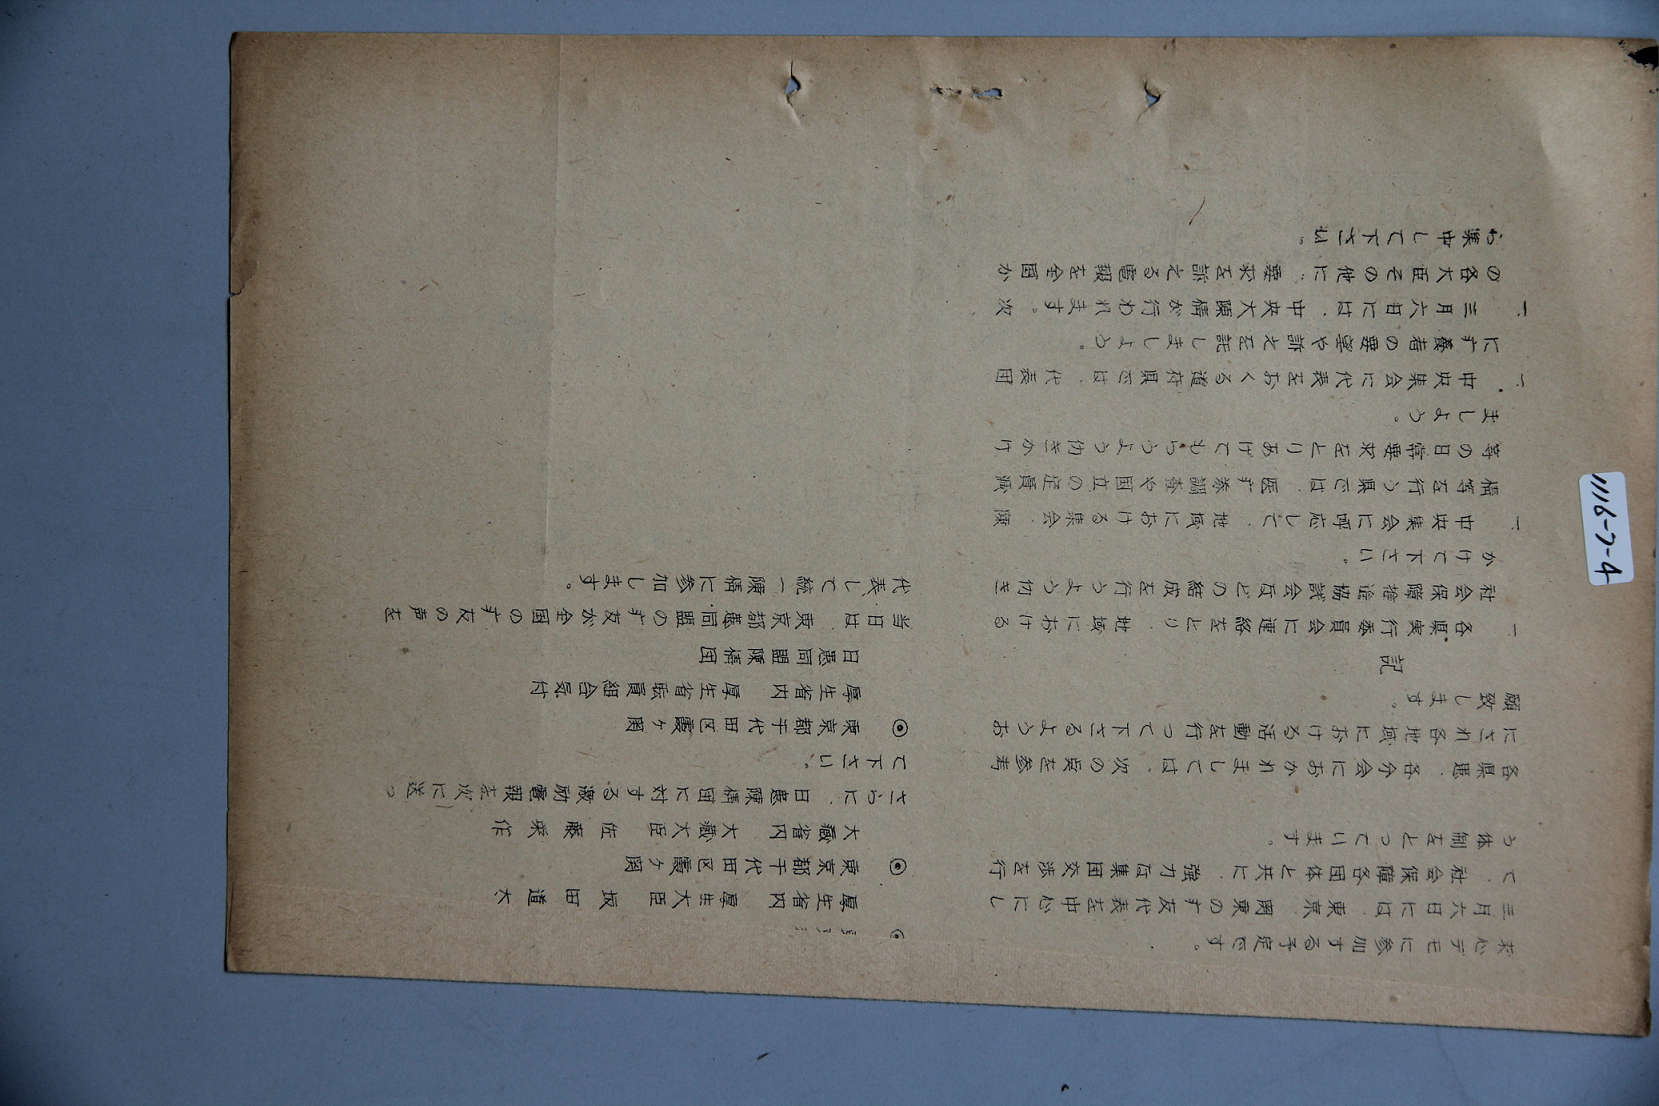 デモに参加する予定です。
三月六日には、東京、関東のす友代表を中心にし
て、社会保障各団体と共に、強力な集団交渉を行
う体制をとっています。
各県連、各分会におかれましては、次の点を参考
にされ各地域における活動を行って下さるようお
願致します。
記
一 各県実行委員会に連絡をとり、地域における
社会保障推進協議会などの結成を行うよう仂き
かけて下さい。
一 中央集会に呼応して、地域における集会、陳
情等を行う県では、医す や国立の定員減
等の日常要求をとりあげてもらうよう仂きかけ
ましよう。
一、中央集会に代表をおくる道府県では、代表団
にす養者の要望や訴えを託しましよう。
一、三月六日には、中央大陳情が行われます。次
の各大臣その他に、要求を訴える電報を全国か
ら集中して下さい。
◎
厚生省内 厚生大臣 坂田道太
◎ 東京都千代田区霞ヶ関
大蔵省内 大蔵大臣 佐藤栄作
さらに、日患陳情団に対する激励電報を次に送っ
て下さい。
◎ 東京都千代田区霞ヶ関
厚生省内 厚生省職員組合気付
日患同盟陳情団
当日は、東京都患同盟のす友が全国のす友の声を
代表して統一陳情に参加します。
1116-7-4